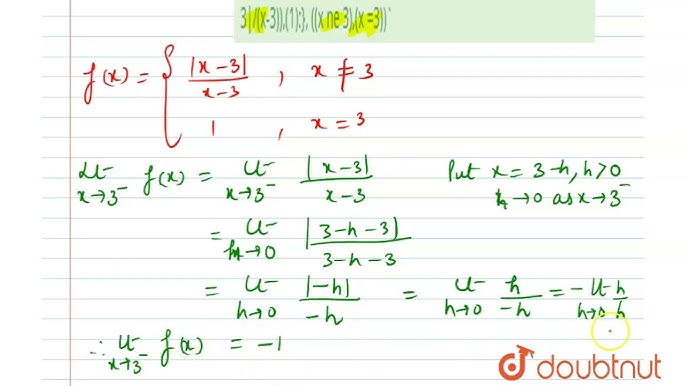 3|/((x-3)),(1):}, ((x ne 3),(x =3))`
f(x) = { |x-3| / x-3 , x ≠ 3
1 , x = 3
Lt x→3⁻ f(x) = Lt x→3⁻ |x-3| / x-3 Put x = 3-h, h>0
h→0 as x→3⁻
= Lt h→0 |3-h-3| / 3-h-3
= Lt h→0 |-h| / -h = Lt h→0 h / -h = -Lt h→0 h / h
∴ Lt x→3⁻ f(x) = -1
doubtnut